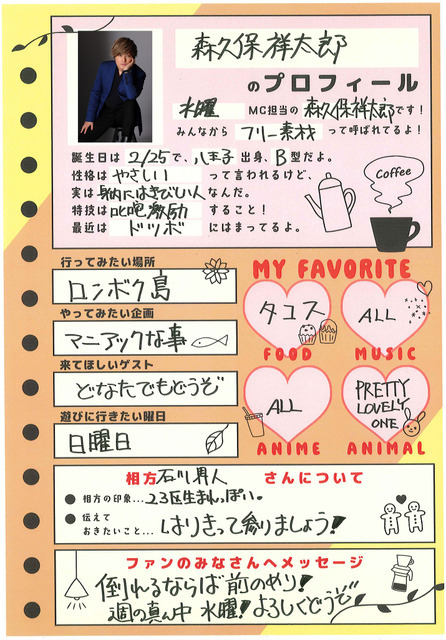 森久保祥太郎
のプロフィール
水曜 MC担当の 森久保祥太郎です!
みんなから フリー素材 って呼ばれてるよ!
誕生日は 2/25で、八王子 出身、B型だよ。
性格は やさしい って言われるけど、
実は 身内にはきびしい人 なんだ。
特技は 叱咤激励 すること!
最近は ドツボ にはまってるよ。
Coffee
行ってみたい場所
ロンボク島
やってみたい企画
マニアックな事
来てほしいゲスト
どなたでもどうぞ
遊びに行きたい曜日
日曜日
MY FAVORITE
タコス
FOOD
ALL
MUSIC
ALL
ANIME
PRETTY
LOVELY
ONE
ANIMAL
相方 石川界人 さんについて
相方の印象…23区生まれっぽい。
伝えて
おきたいこと… はりきって参りましょう!
ファンのみなさんへメッセージ
倒れるならば前のめり!
週の真ん中 水曜!よろしくどうぞ